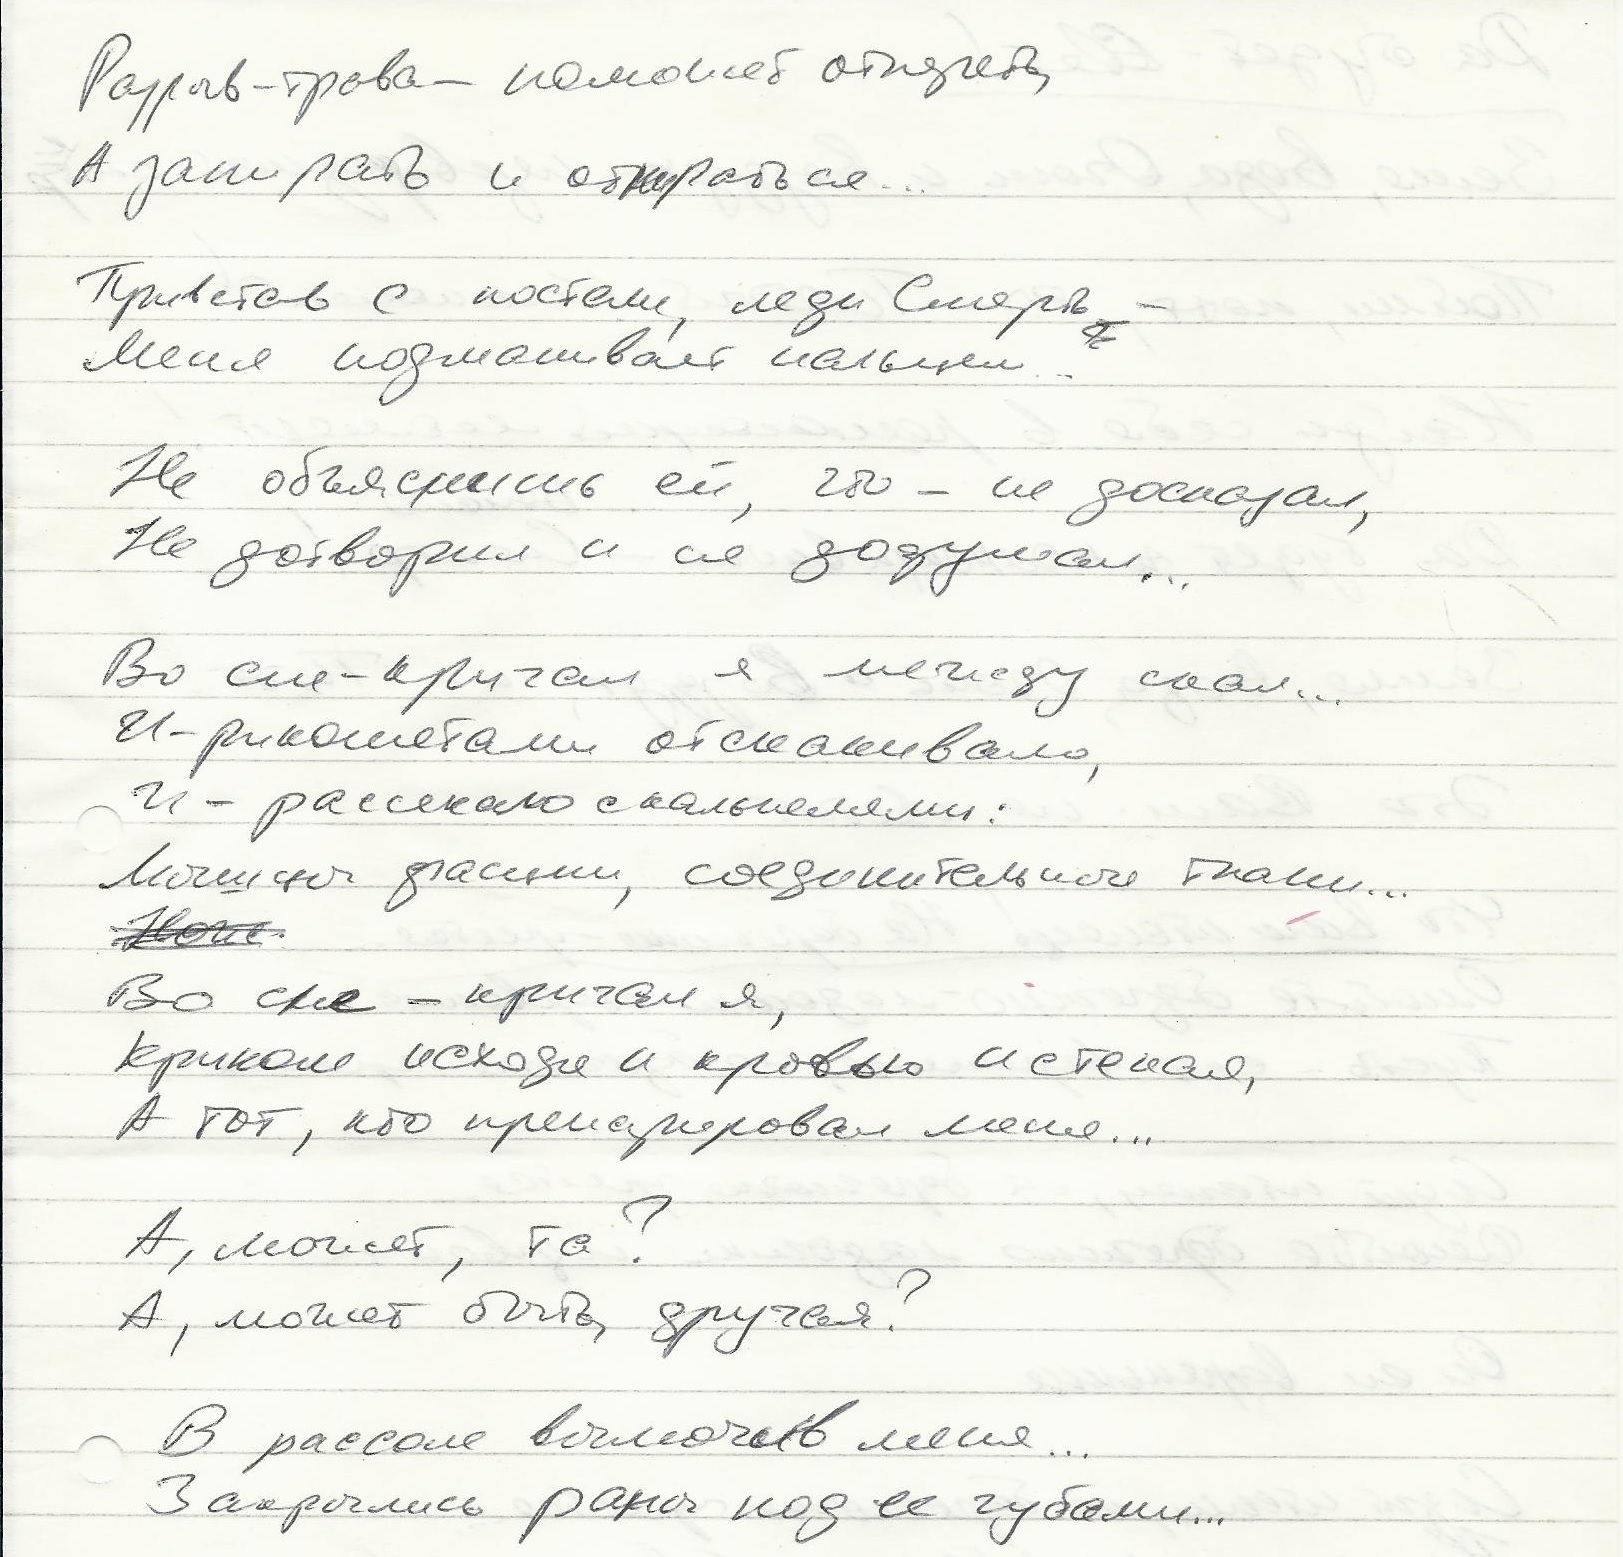 Разрыв-трава – поможет отпереть,
А запирать и отпираться...
Привстав с постели, леди Смерть –
Меня подманивает пальцем...
Не объяснишь ей, что – не досказал,
Не дотворил и не додумал...
Во сне – кричал я между скал...
И – рикошетами отскакивало,
И – рассекало скальпелями:
Мышцы, фасции, соединительные ткани...
Во сне – кричал я,
Криком исходя и кровью истекая,
А тот, кто препарировал меня...
А, может, та?
А, может быть, другая?
В рассоле вымочив меня...
Закрылись раны под ее губами...